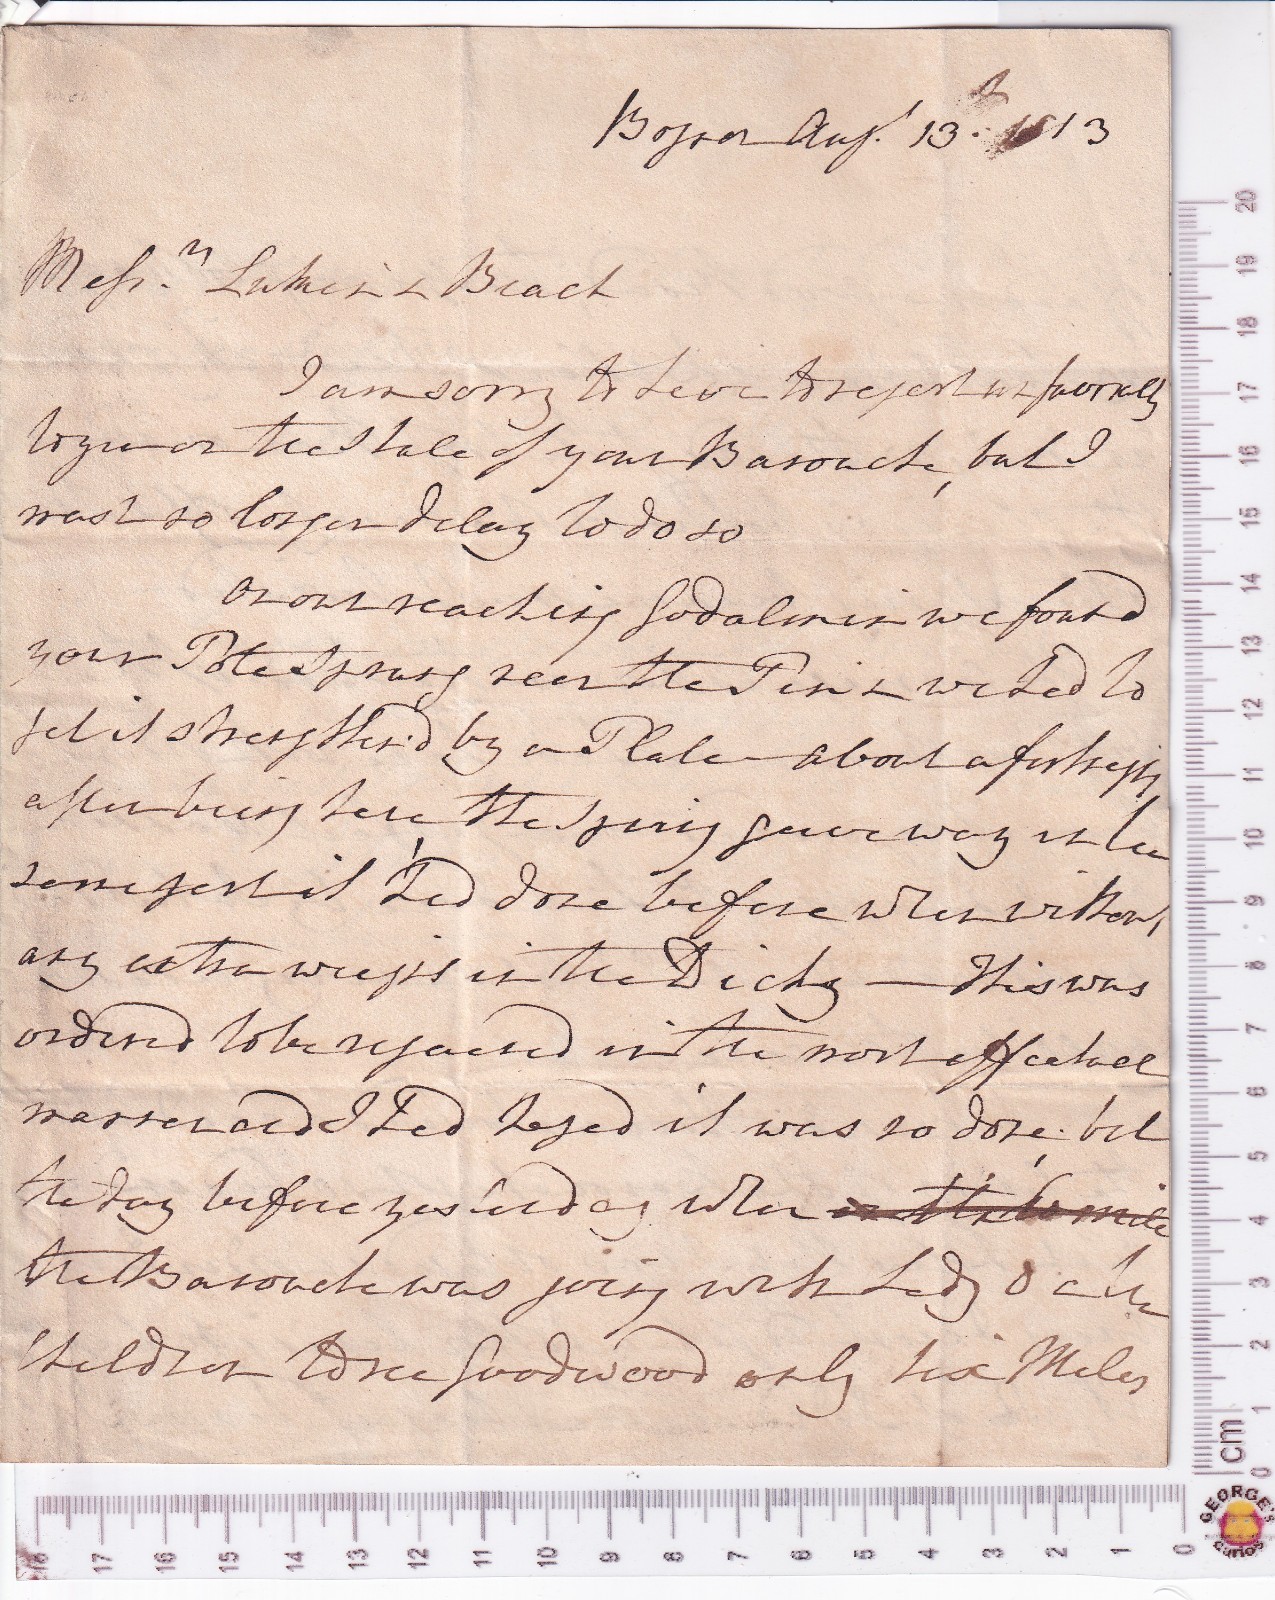 Bognor Augt. 13th. 1813
Messrs. Lukin & Beach
I am sorry to have to report unfavorably
to you on the state of your Barouche, but I
must no longer delay to do so
on our reaching Godalmin we found
your Pole Sprung near the Pin & we had to
get it strengthen'd by a Plate - about a fortnight
after being here, the Spring gave way in the
same part it had done before when without
any extra weight in the Dicky — This was
ordered to be repaired in the most effectual
manner and I had hoped it was so done, but
the day before yesterday when
the Barouche was going with Lady O & the
Children to see Goodwood only six Miles
20 19 18 17 16 15 14 13 12 11 10 9 8 7 6 5 4 3 2 1 0
cm
18 17 16 15 14 13 12 11 10 9 8 7 6 5 4 3 2 1 0
GEORGE'S
curios